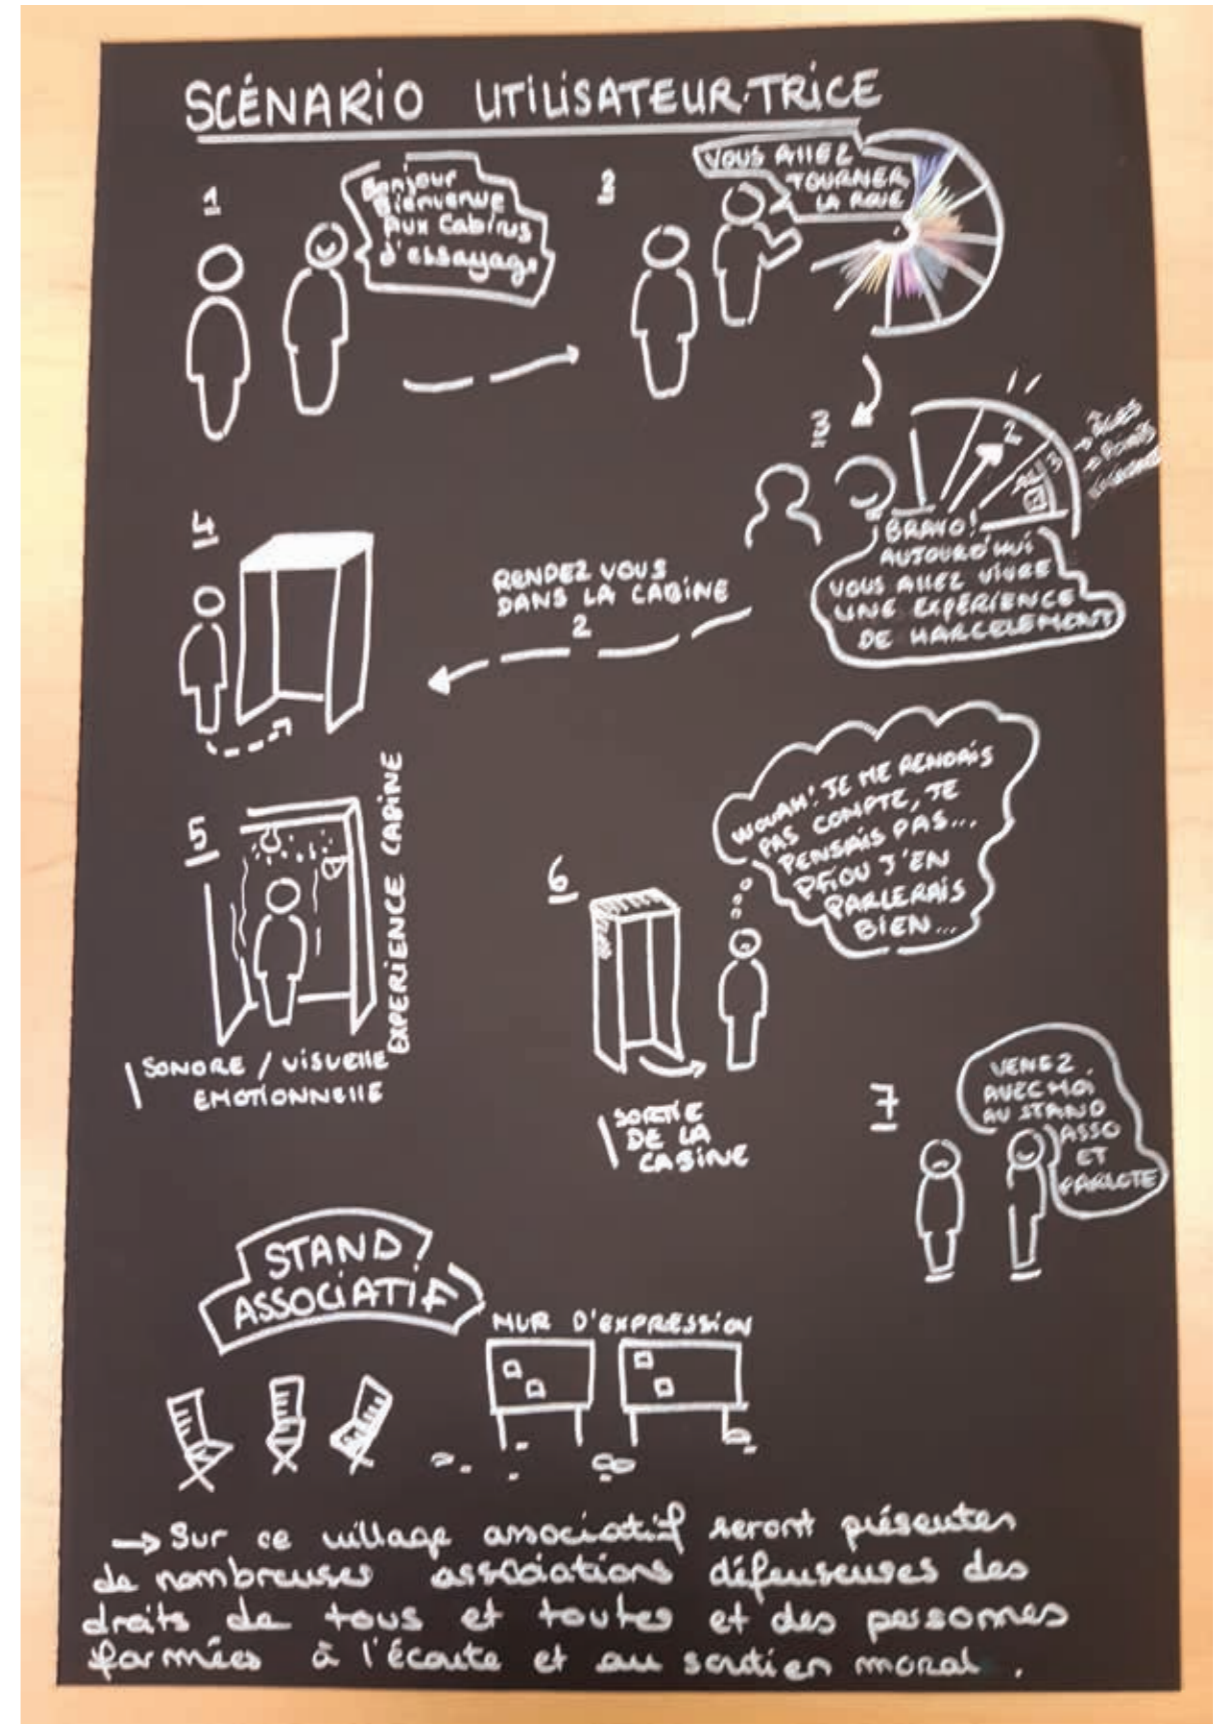 SCÉNARIO UTILISATEUR·TRICE
1
Bonjour
Bienvenue
Aux Cabines
d'essayage
2
VOUS ALLEZ
TOURNER
LA ROUE
3
2
3
→ ÂGES
→ POINTS
BRAVO!
AUJOURD'HUI
VOUS ALLEZ VIVRE
UNE EXPÉRIENCE
DE HARCELEMENT
RENDEZ VOUS
DANS LA CABINE
2
4
5
EXPERIENCE CABINE
SONORE / VISUELLE
EMOTIONNELLE
6
WOUAH! JE ME RENDAIS
PAS COMPTE, JE
PENSAIS PAS...
PFIOU J'EN
PARLERAIS
BIEN...
SORTIE
DE LA
CABINE
7
VENEZ
AVEC MOI
AU STAND
ASSO
ET
PARLOTE
STAND
ASSOCIATIF
MUR D'EXPRESSION
→ Sur ce village associatif seront présentes
de nombreuses associations défenseuses des
droits de tous et toutes et des personnes
formées à l'écoute et au soutien moral.